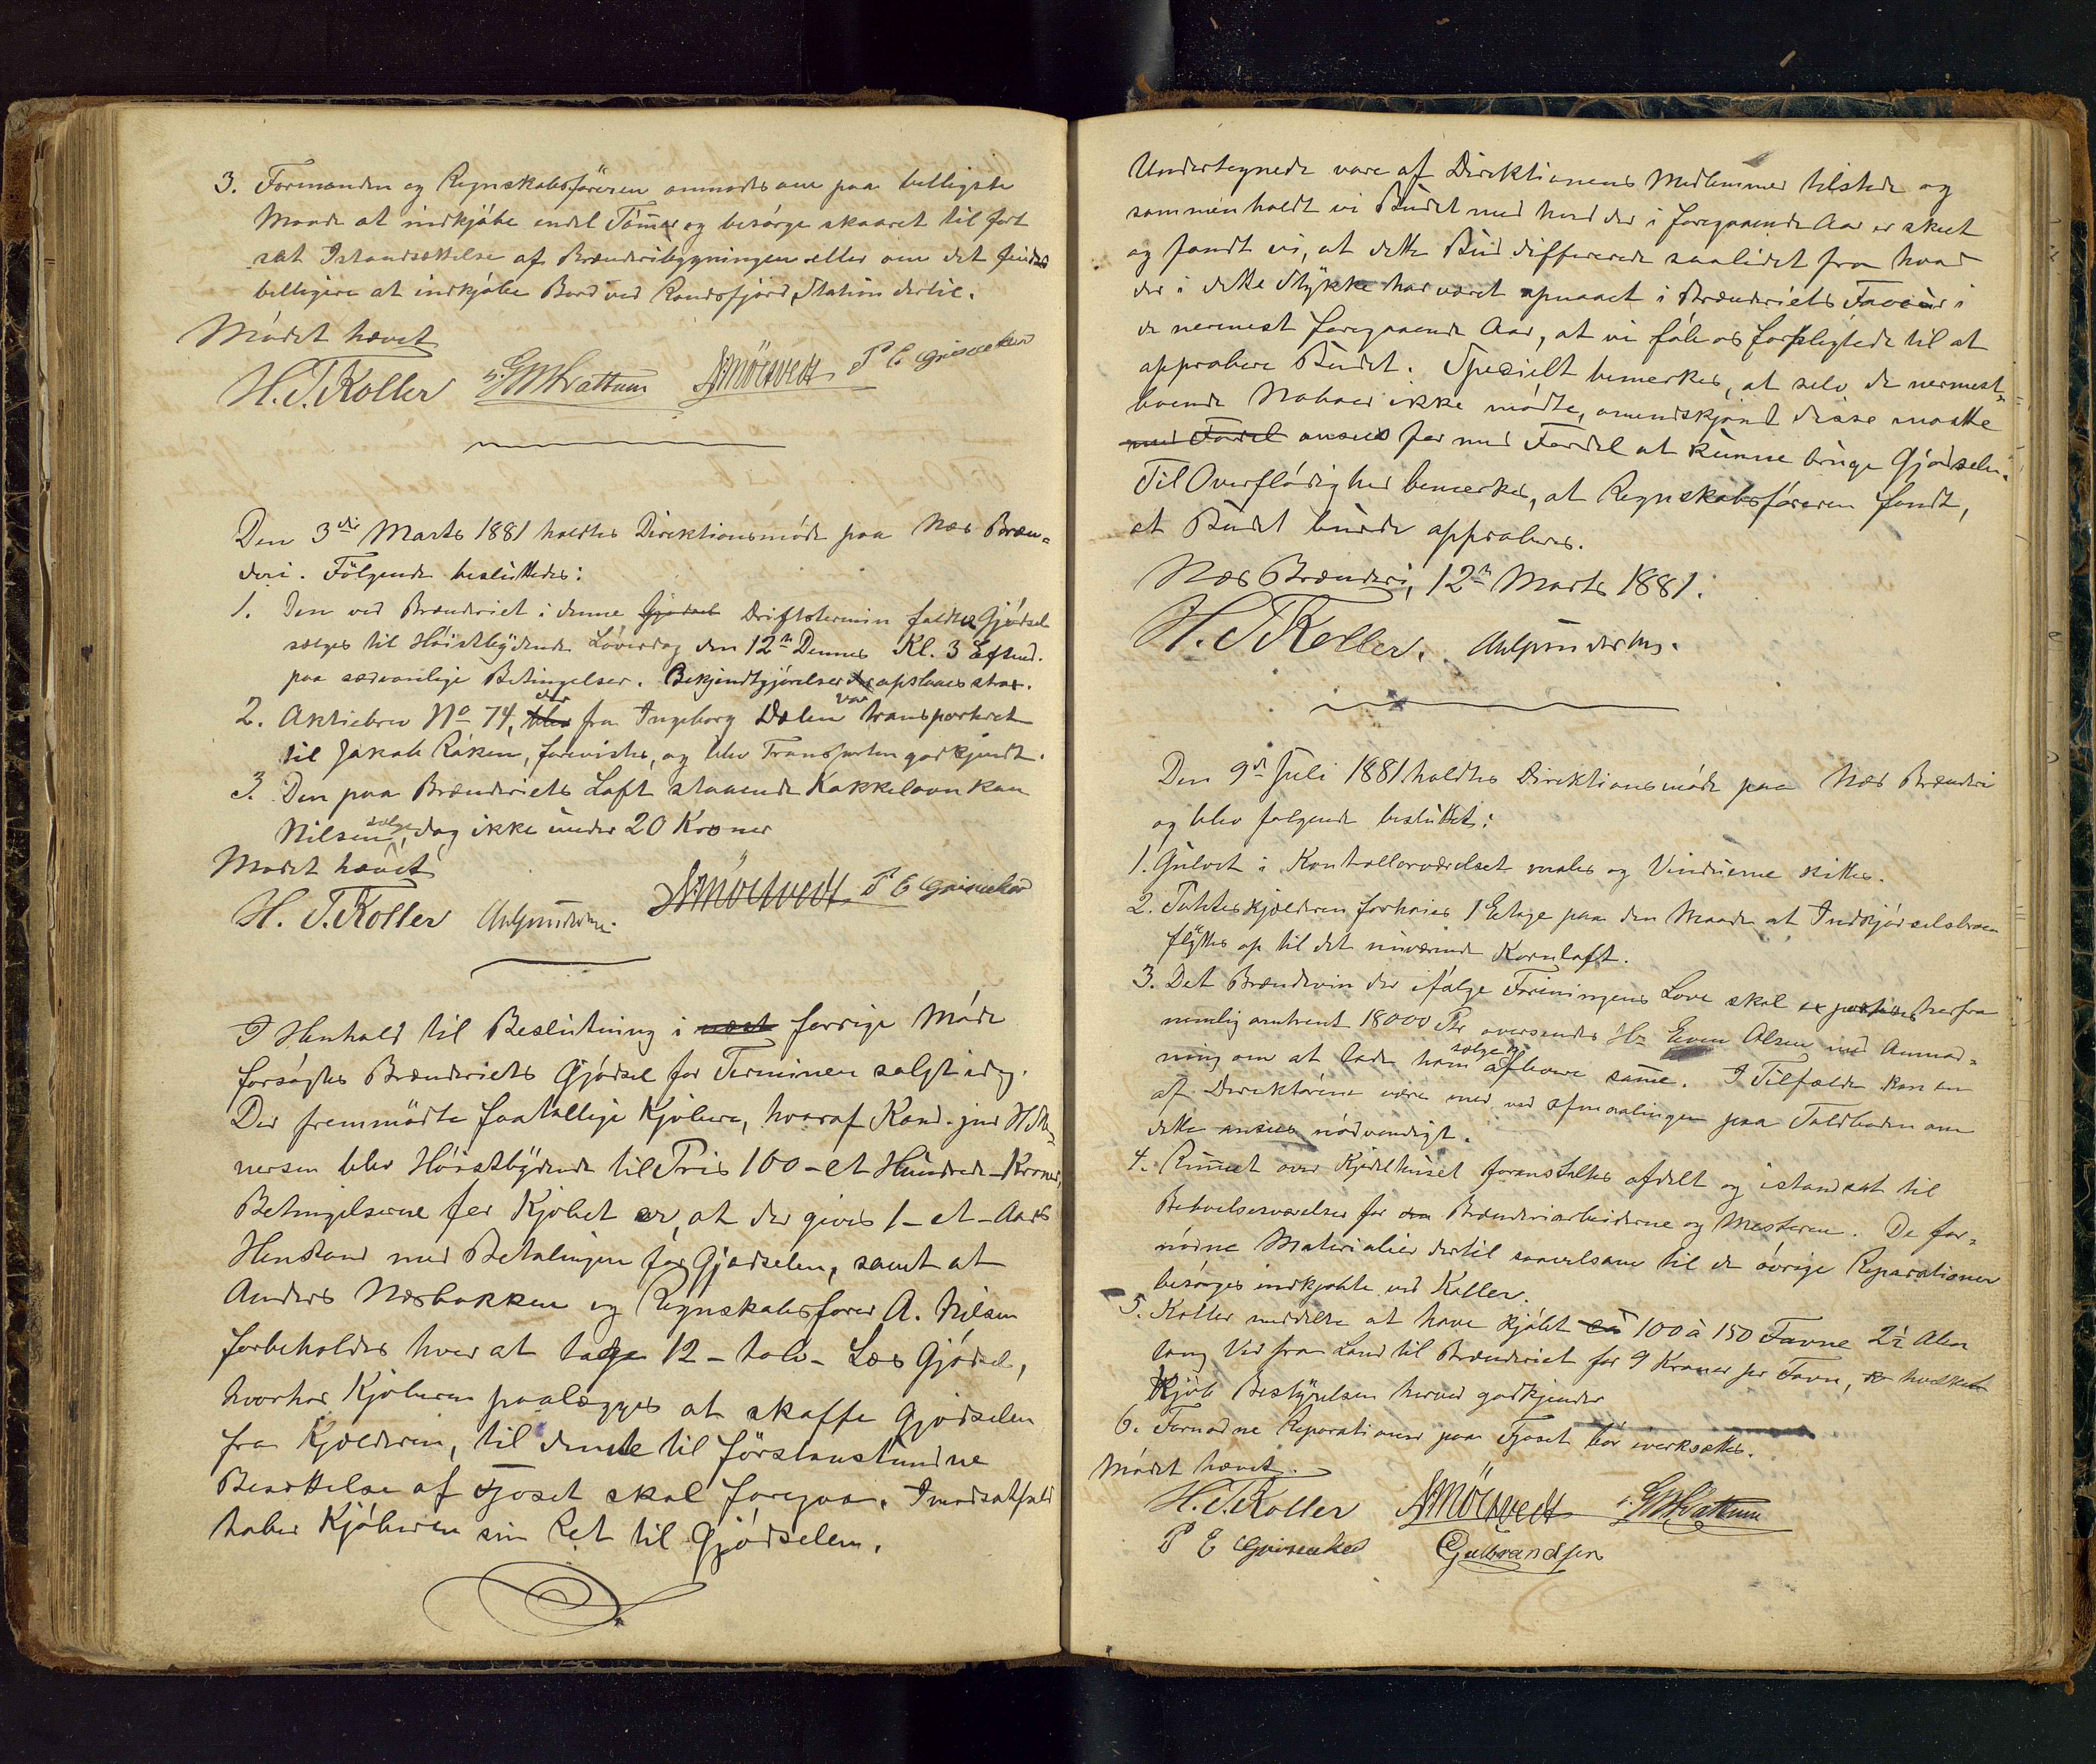 3. Formanden og Regnskabsföreren anmodes om paa billigste
Maade at indkjöbe endel Tömer og besörge skaaret til fort
sat Istandsættelse af Brænderibygningen eller om det findes
billigere at indkjöbe Bord ved Randsfjord Station dertil.
Mödet hævet
H. T. Koller G M Hvattum A Möetvedt P E Griseaker
Den 3die Marts 1881 holdtes Direktionsmöde paa Næs Bræn=
deri. Fölgende besluttedes:
1. Den ved Brænderiet i denne Gjödsel Driftstermin faldte Gjödsel
sælges til Höistbydende Löverdag den 12te Dennes Kl. 3 Eftmd.
paa sædvanlige Betingelser. Bekjendtgjörelser opslaaes strax.
2. Aktiebrev No 74, blev der fra Ingeborg Dælen var transporteret
til Jakob Råken, forevistes, og blev Transporten godkjendt.
3. Den paa Brænderiets Loft staaende Kakkelovn kan
Nilsen sælge, dog ikke under 20 Kroner
Mödet hævet
H. T. Koller A Möetvedt P E Griseaker
I Henhold til Beslutning i næst forrige Möde
forsögtes Brænderiets Gjödsel for Terminen solgt idag.
Der fremmödte faatallige Kjöbere, hvoraf Kand. jur H Mo
nersen blev Höistbydende til Pris 100 - et Hundrede - Kroner,
Betingelserne for Kjöbet er, at der gives 1 - et - Aars
Henstand med Betalingen for Gjödselen, samt at
Anders Næsbakken og Regnskabsförer A. Nilsen
forbeholdes hver at tage 12 - tolv - Læs Gjödsel,
hvorhos Kjöberen paalægges at skaffe Gjödselen
fra Kjælderen, til denne til förstkommende
Besættelse af Fjoset skal foregaa. Imodsatfald
taber Kjöberen sin Ret til Gjödselen.
Undertegnede vare af Direktionens Medlemmer tilstede og
sammenholdt vi Budet med hvad der i foregaaende Aar er skeet
og fandt vi, at dette Bud differerede saalidet fra hvad
der i dette Stykke har været opnaaet i Brænderiets Faveur i
de nermest foregaaende Aar, at vi föle os forpligtede til at
approbere Budet. Specielt bemerkes, at selv de nermest
boende Naboer ikke mödte, omendskjönt disse maatte
med Fordel ansees for med Fordel at kunne bruge Gjödselen.
Til Overflödighed bemerkes, at Regnskabsföreren fandt,
at Budet burde approberes.
Næs Brænderi, 12te Marts 1881.
H. T Koller.
Den 9de Juli 1881 holdtes Direktionsmöde paa Næs Brænderi
og blev folgende besluttet:
1. Gulvet i Kontrollørværelset males og Vinduerne kittes.
2. Poteteskjælderen forhöies 1 Etage paa den Maade at Indkjörselsbroen
flyttes op til det nuværende Kornloft.
3. Det Brændevin der ifölge Foreningens Love skal exporteres herfra
nemlig omtrent 18000 Ptr oversendes Hr Even Olsen med Anmod=
ning om at lade ham sælge og aflevere samme. I Tilfælde kan en
af Direktörerne være med ved Afmaalingen paa Toldboden om
dette ansees nödvendigt.
4. Rummet over Kjedelhuset foranstaltes afdelt og istandsat til
Beboelsesværelser for den Brænderiarbeiderne og Mesteren. De for=
nödne Materialier dertil saavelsom til de övrige Reparationer
besörges indkjöbte ved Koller.
5. Koller meddelte at have kjöbt ca 100 à 150 Favne 2½ Alen
lang Ved fra Land til Brænderiet for 9 Kroner pr Favn, hvilket
Kjöb Bestyrelsen herved godkjender
6. Fornödne Reparationer paa Fjoset bör iverksættes.
Mödet hævet.
H. T. Koller A Möetvedt G M Hvattum
P E Griseaker Gulbrandsen